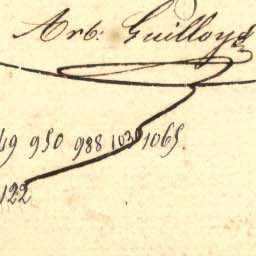 Arb: Guilloy
49 950 988 1031 1065.
122